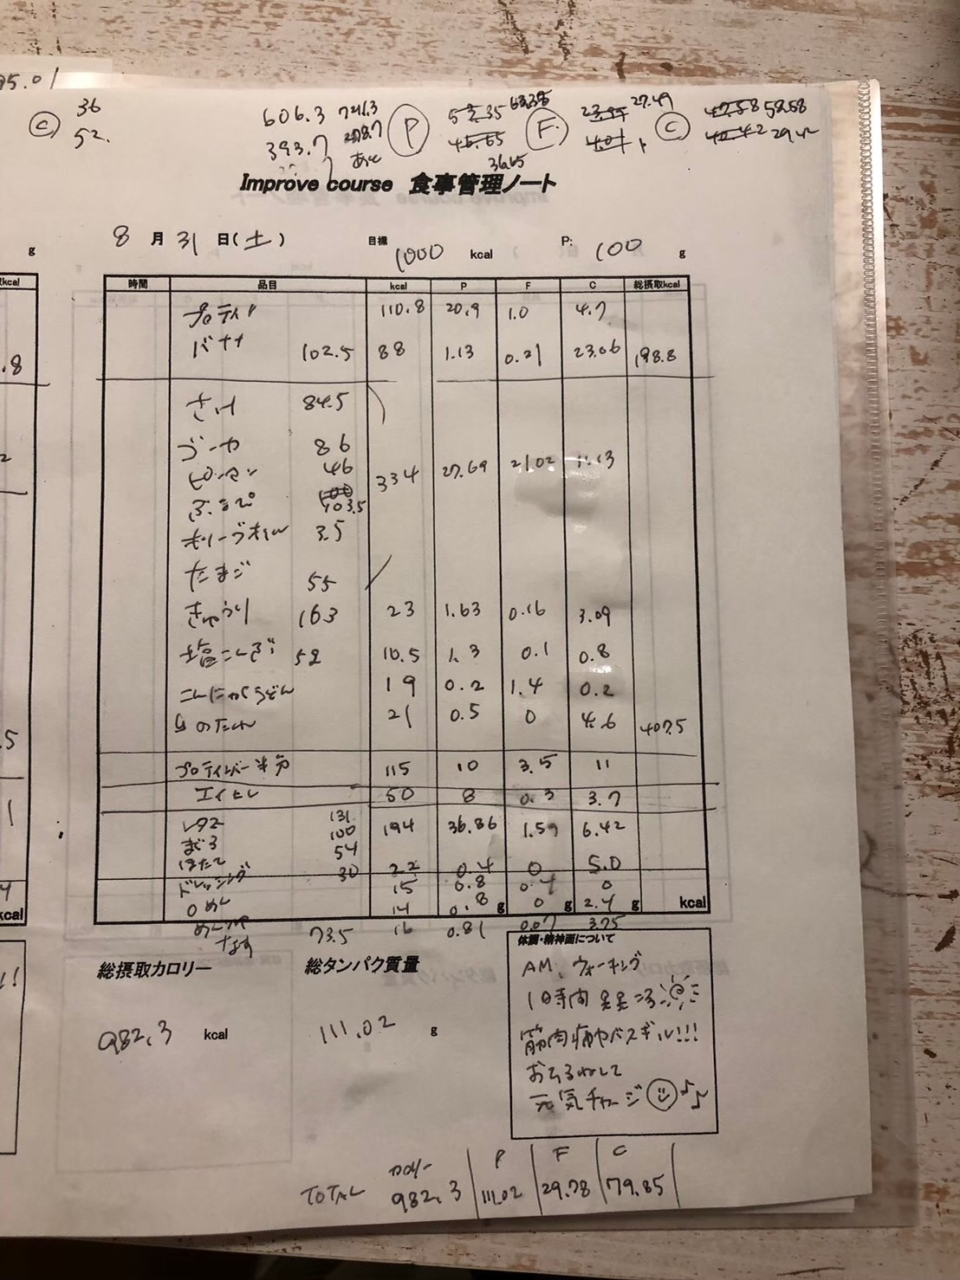 95.01
C 36
52.
606.3 726.3 P 53.35 63.35 F 23.95 27.49 C 47.58 58.58
393.7 あと 45.65 40.42 29.42
36.65
Improve course 食事管理ノート
8 月 31 日(土) 目標 1000 kcal P: 100 g
時間 品目 kcal P F C 総摂取kcal
プロテイン 110.8 20.9 1.0 4.7
バナナ 102.5 88 1.13 0.21 23.06 198.8
84.5
ゴーヤ 86
ピーマン 46
334 27.69 21.02 11.13
103.5
オリーブオイル 3.5
たまご 55
きゅうり 163 23 1.63 0.16 3.09
塩こんぶ 52 10.5 1.3 0.1 0.8
こんにゃくうどん 19 0.2 1.4 0.2
21 0.5 0 4.6 407.5
プロテインバー半分 115 10 3.5 11
エイヒレ 50 8 0.3 3.7
レタス 131 194 36.86 1.59 6.42
まぐろ 100
ほたて 54
ドレッシング 30 22 0.4 0 5.0
15 0.8 0.4 0
14 0.8 g 0 g 2.4 g kcal
なす 73.5 16 0.81 0.07 3.75
総摂取カロリー 総タンパク質量
982.3 kcal 111.02 g
体調・精神面について
AM、ウォーキング
1日時間
筋肉痛ヤバスギル!!!
おひるねして
元気チャージ ♪♪
カロリー P F C
TOTAL 982.3 111.02 29.78 79.85
g
kcal
.8
.5
kcal
!!